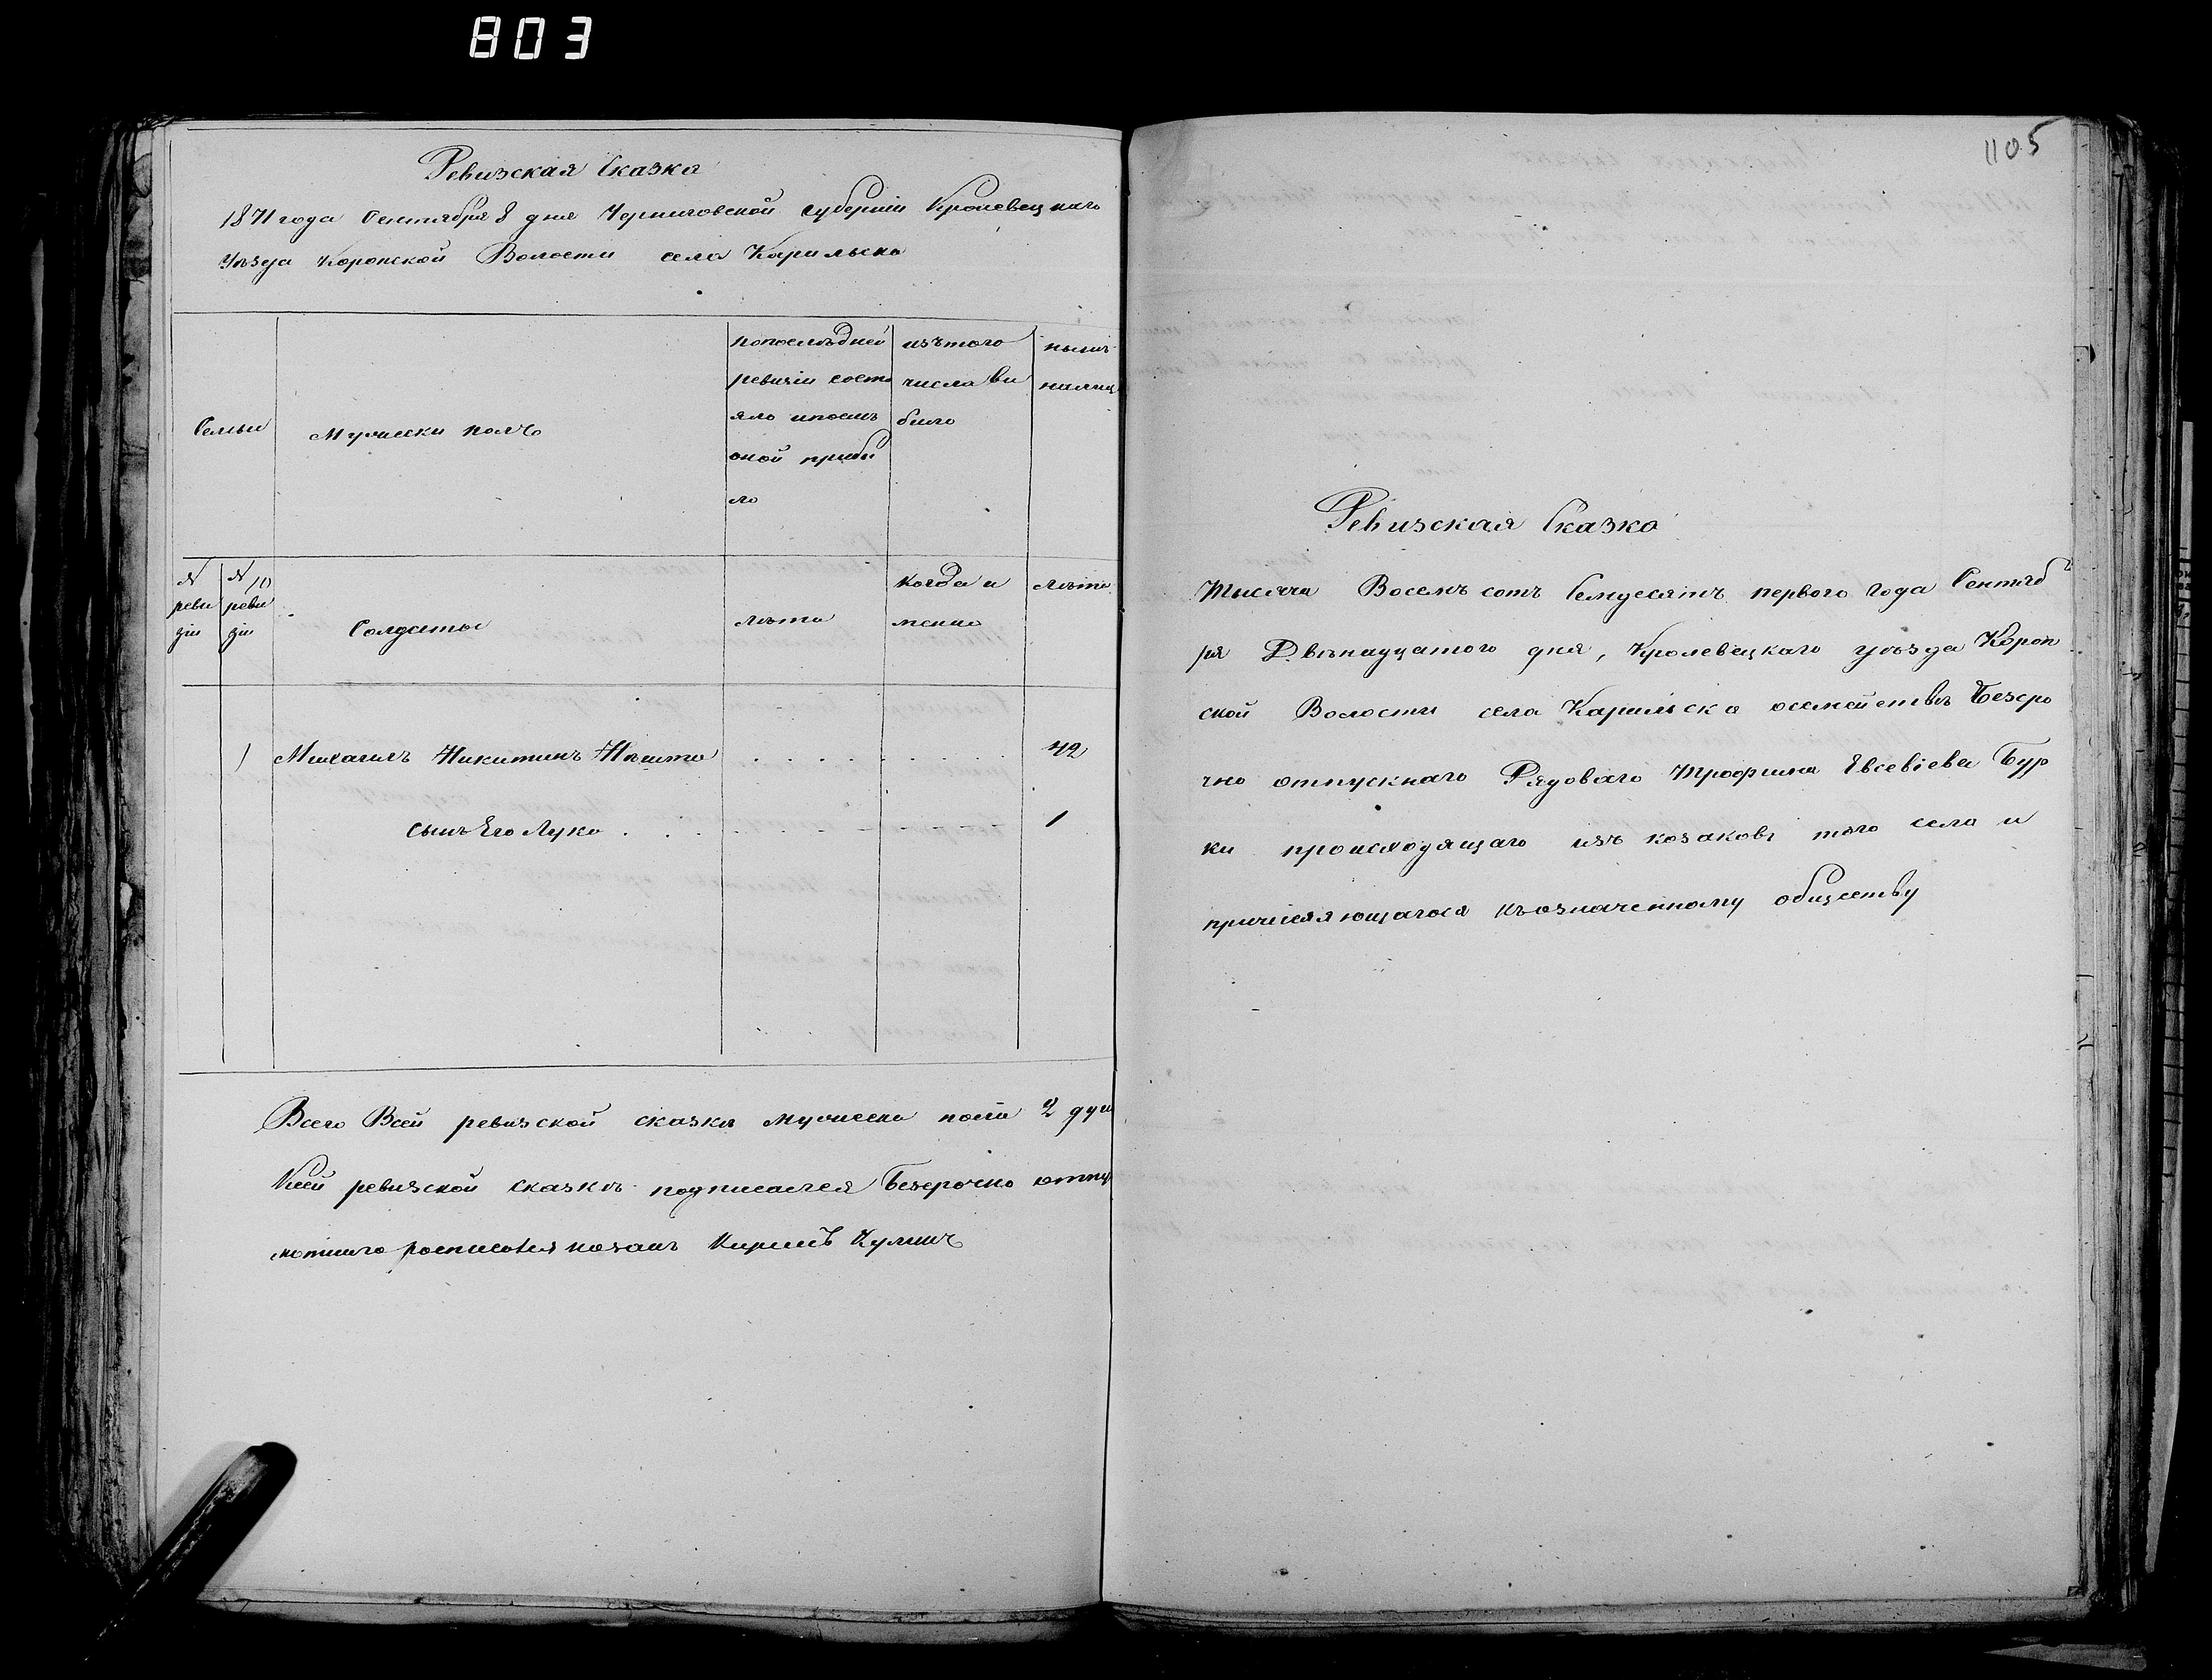 803
1105
Ревизская Сказка
1871 года Сентября 8 дня Черниговской губернии Кролевецкаго
Уѣзда Коропской Волости села Карильска
Семьи
Мужески полъ
попослѣдней
ревизіи состо
яло ипослѣ
оной прибы
ло
изътого
числа вы
было
нынѣ
налиц
№
реви
зіи
№ 10
реви
зіи
Солдаты
лѣта
когда и
менно
лѣта
1 Михаилъ Никитинъ 42
сынъ Его Лука 1
Всего Всей ревизской сказкѣ мужеска пола 2 душ
Ксей ревизской сказкѣ подписался Безсрочно отпу
росписался козакъ Кирилъ
Ревизская Сказка
Тысяча Восемъ сотъ Семдесятъ первого Года Сентяб
ря Двѣнадцатого дня, Кролевецкаго уѣзда Короп
ской Волости села Карильска осемействѣ Безсро
чно отпускнаго Рядоваго Трофима Евсевіева Бур
ки происходящаго изъ козаковъ того села и
причисляющагося къозначенному обществу